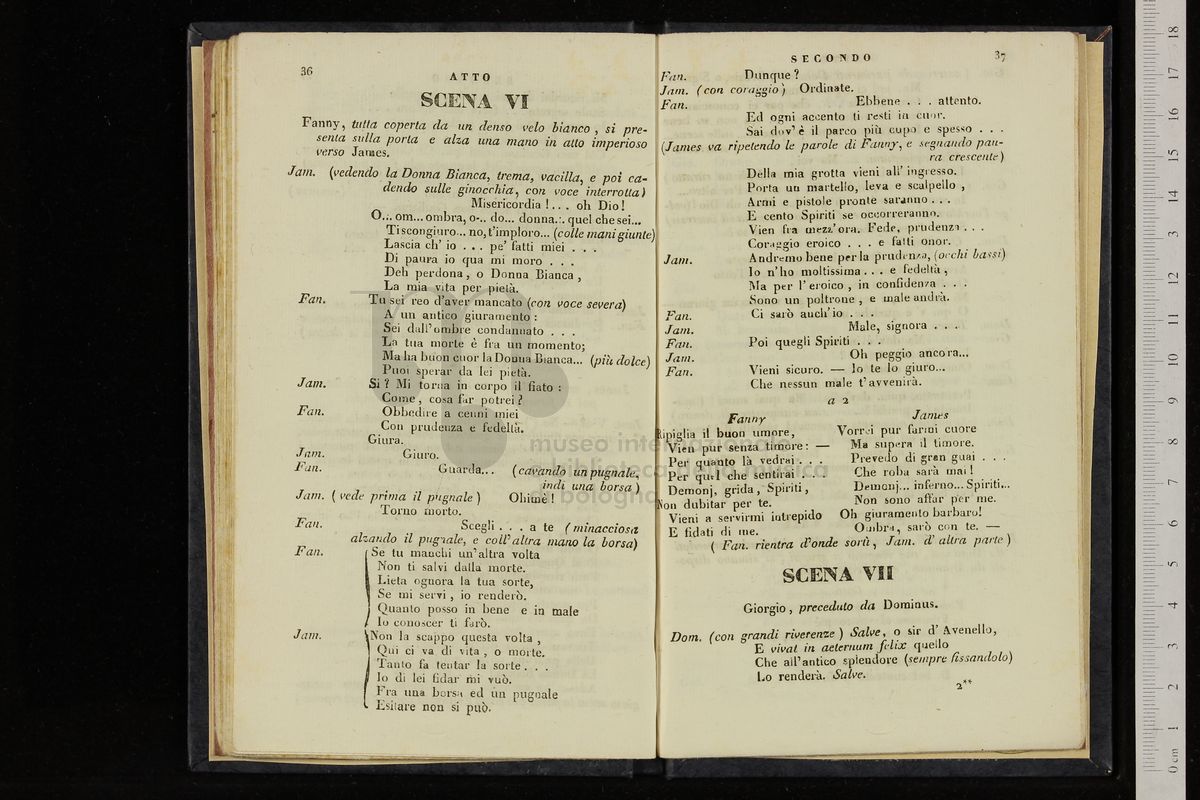 36
ATTO
SCENA VI
Fanny, tutta coperta da un denso velo bianco, si pre-
senta sulla porta e alza una mano in atto imperioso
verso James.
Jam. (vedendo la Donna Bianca, trema, vacilla, e poi ca-
dendo sulle ginocchia, con voce interrotta)
Misericordia!... oh Dio!
O... om... ombra, o-.. do... donna.:. quel che sei...
Ti scongiuro... no, t'imploro... (colle mani giunte)
Lascia ch' io . . . pe' fatti miei . . .
Di paura io qua mi moro . . .
Deh perdona, o Donna Bianca,
La mia vita per pietà.
Fan. Tu sei reo d'aver mancato (con voce severa)
A un antico giuramento :
Sei dall'ombre condannato . . .
La tua morte è fra un momento;
Ma ha buon cuor la Donna Bianca... (più dolce)
Puoi sperar da lei pietà.
Jam. Si ? Mi torna in corpo il fiato :
Come, cosa far potrei?
Fan. Obbedire a cenni miei
Con prudenza e fedeltà.
Giura.
Jam. Giuro.
Fan. Guarda... (cavando un pugnale,
indi una borsa)
Jam. (vede prima il pugnale) Ohimè!
Torno morto.
Fan. Scegli . . . a te (minacciosa
alzando il pugnale, e coll'altra mano la borsa)
Fan. Se tu manchi un'altra volta
Non ti salvi dalla morte.
Lieta ognora la tua sorte,
Se mi servi, io renderò.
Quanto posso in bene e in male
Io conoscer ti farò.
Jam. Non la scappo questa volta,
Qui ci va di vita, o morte.
Tanto fa tentar la sorte. . .
Io di lei fidar mi vuò.
Fra una borsa ed un pugnale
Esitare non si può.
SECONDO
37
Fan. Dunque?
Jam. (con coraggio) Ordinate.
Fan. Ebbene . . . attento.
Ed ogni accento ti resti in cuor.
Sai dov' è il parco più cupo e spesso . . .
(James va ripetendo le parole di Fanny, e segnando pau-
ra crescente)
Della mia grotta vieni all' ingresso.
Porta un martello, leva e scalpello ,
Armi e pistole pronte saranno . . .
E cento Spiriti se occorreranno.
Vien fra mezz'ora. Fede, prudenza . . .
Coraggio eroico . . . e fatti onor.
Jam. Andremo bene per la prudenza, (occhi bassi)
Io n'ho moltissima . . . e fedeltà,
Ma per l'eroico, in confidenza . . .
Sono un poltrone, e male andrà.
Fan. Ci sarò anch'io . . .
Jam. Male, signora . . .
Fan. Poi quegli Spiriti . . .
Jam. Oh peggio ancora...
Fan. Vieni sicuro. — Io te lo giuro...
Che nessun male t'avvenirà.
a 2
Fanny
Ripiglia il buon umore,
Vien pur senza timore: —
Per quanto là vedrai . . .
Per quel che sentirai . . .
Demonj, grida, Spiriti,
Non dubitar per te.
Vieni a servirmi intrepido
E fidati di me.
James
Vorrei pur farmi cuore
Ma supera il timore.
Prevedo di gran guai . . .
Che roba sarà mai!
Demonj... inferno... Spiriti...
Non sono affar per me.
Oh giuramento barbaro!
Ombra, sarò con te. —
( Fan. rientra d'onde sortì, Jam. d'altra parte )
SCENA VII
Giorgio, preceduto da Dominus.
Dom. (con grandi riverenze) Salve, o sir d' Avenello,
E vivat in aeternum felix quello
Che all'antico splendore (sempre fissandolo)
Lo renderà. Salve.
2**
museo internazionale
biblioteca della musica
bologna
0 cm 1 2 3 4 5 6 7 8 9 10 11 12 13 14 15 16 17 18